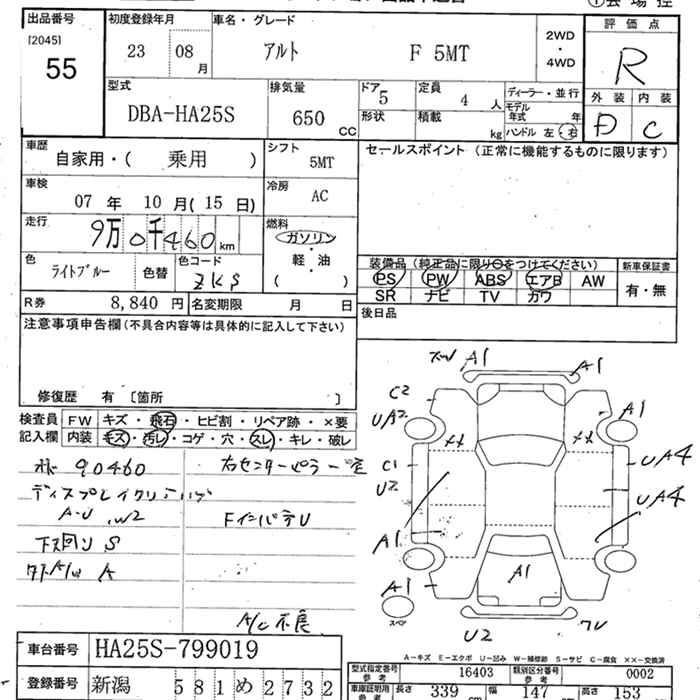 出品番号 初度登録年月 車名・グレード 評価点
[2045] 55
23 08 月 アルト F 5MT 2WD・4WD R
型式 排気量 ドア 定員 ディーラー・並行 外装 内装
DBA-HA25S 650 CC 5 4 人 モデル年式 年 D C
形状 積載 kg ハンドル 左・右
車歴 自家用・( 乗用 ) シフト 5MT セールスポイント (正常に機能するものに限ります)
車検 07 年 10 月( 15 日) 冷房 AC
走行 9万0千460 km 燃料 ガソリン 軽・油 ( )
装備品 (純正品に限り○をつけてください) 新車保証書
色 ライトブルー 色替 色コード ZKS PS PW ABS エアB AW 有・無
SR ナビ TV カワ
R券 8,840 円 名変期限 月 日 後日品
注意事項申告欄 (不具合内容等は具体的に記入して下さい)
修復歴 有 〔箇所 〕
検査員 FW キズ・飛石・ヒビ割・リペア跡・×要
記入欄 内装 キズ・汚レ・コゲ・穴・スレ・キレ・破レ
90460 右センターピラー
A・U W2
下回り S
A
A/C不良
A1 A1
C2
UA2 A1
C1 UA4
U2 UA4
A1
A1 A1
スペア
U2
A-キズ E-エクボ U-凹ミ W-補修跡 S-サビ C-腐食 ××-交換済
車台番号 HA25S-799019
型式指定番号 参考 16403 類別区分番号 参考 0002
登録番号 新潟 581め2732
車庫証明用 参考 長さ 339 cm 幅 147 cm 高さ 153 cm